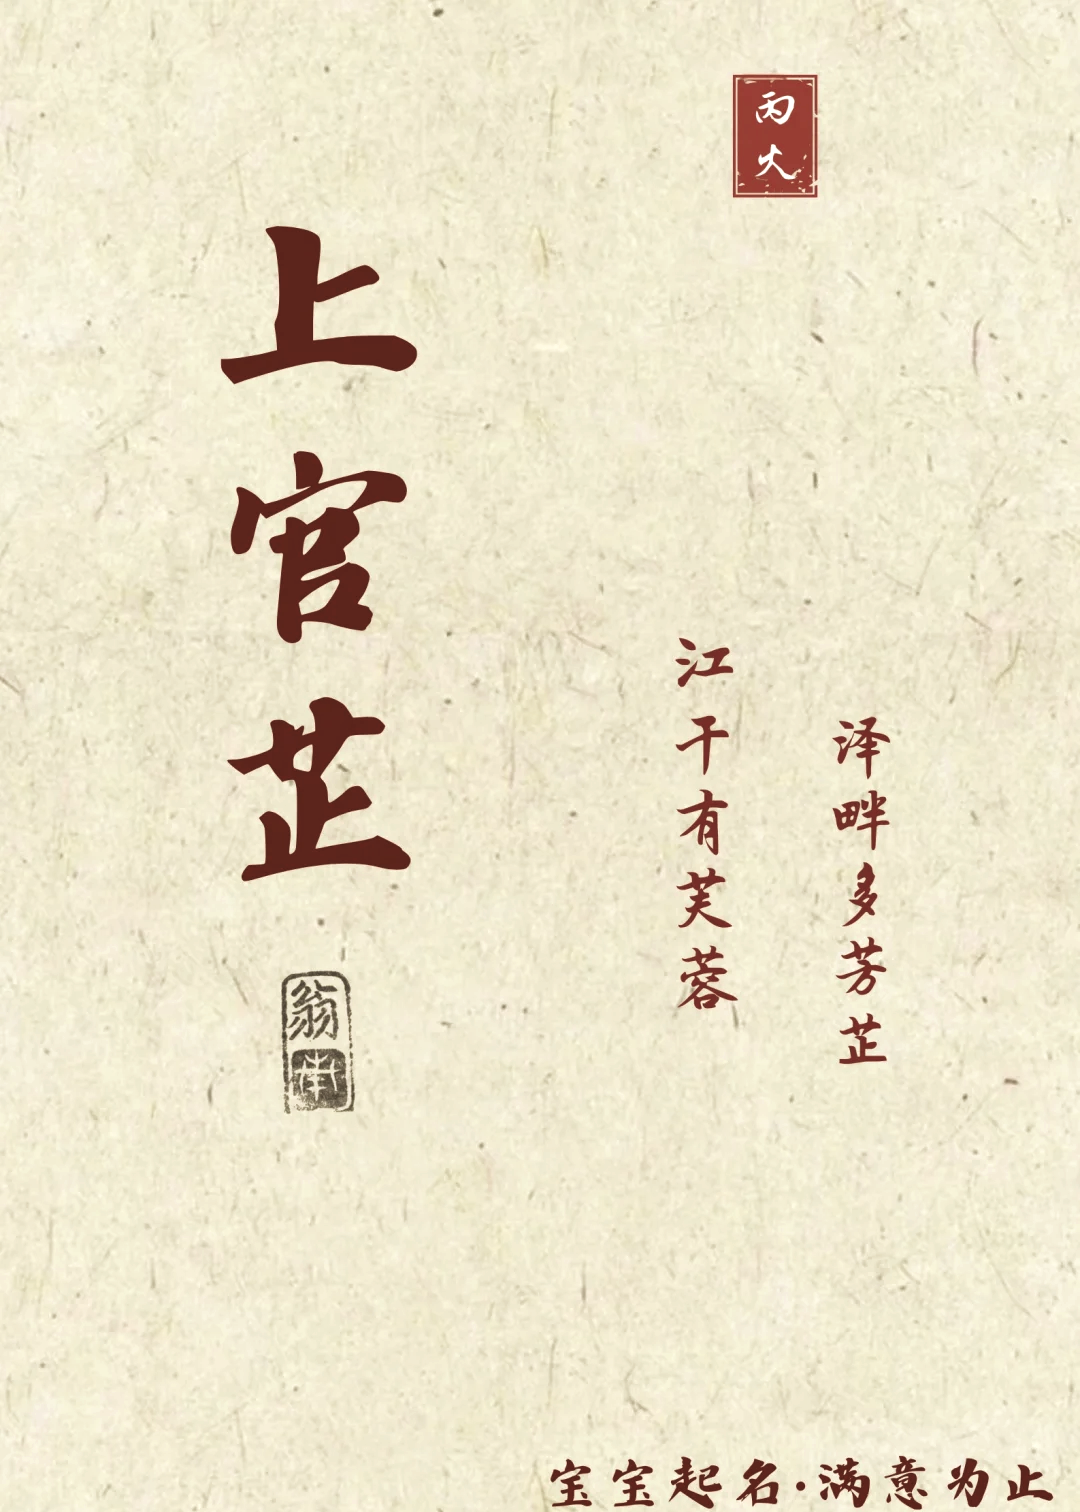 丙火
泽畔多芳芷
江干有芙蓉
上官芷
翁
宝宝起名·满意为止